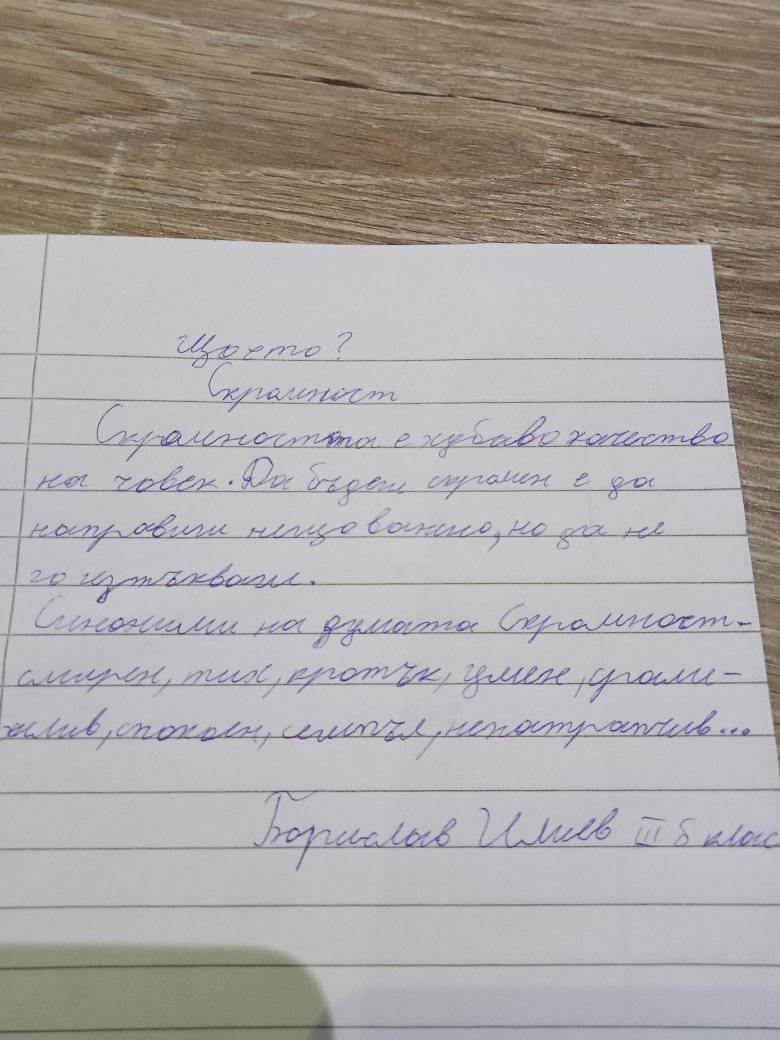 Що е то?
Скромност
Скромността е хубаво качество
на човек. Да бъдеш скромен е да
направиш нещо важно, но да не
го изтъкваш.
Синоними на думата Скромност-
смирен, тих, кротък, умен, срами-
жлив, спокоен, семпъл, ненатрапчив...
Борислав Илиев III б клас